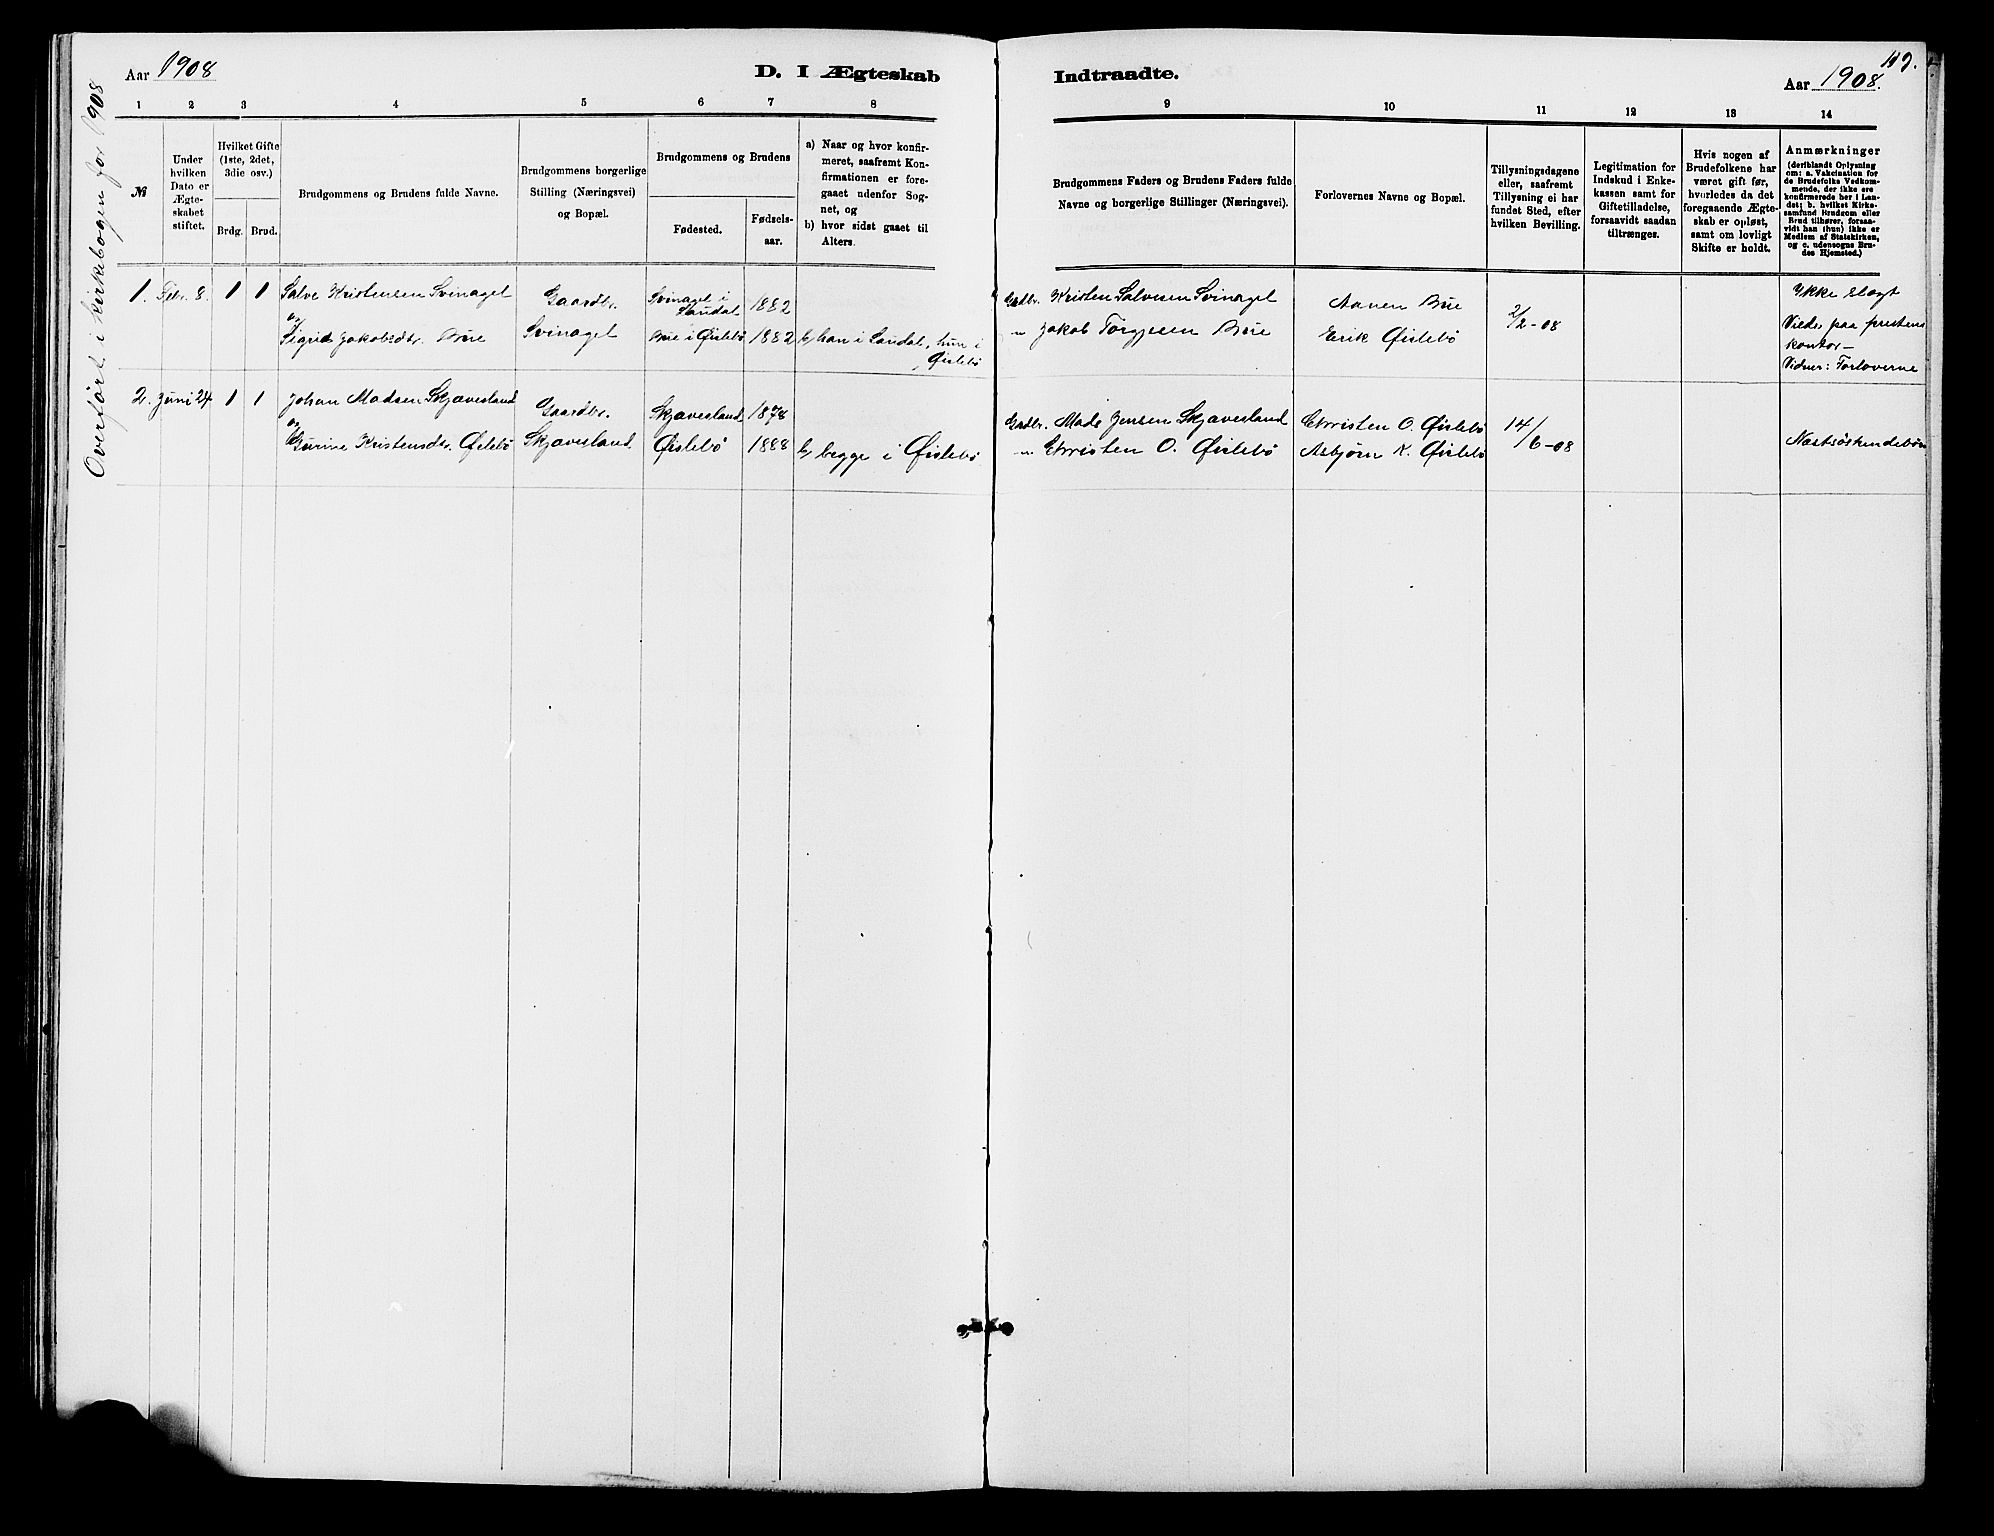 Aar 1908
D. I Ægteskab
Indtraadte.
Aar 1908.
Overført i kirkebogen for 1908
1 2 3 4 5 6 7 8
9 10 11 12 13 14
№
Under hvilken Dato er Ægteskabet stiftet.
Hvilket Gifte (1ste, 2det, 3die osv.)
Brdg. Brud.
Brudgommens og Brudens fulde Navne.
Brudgommens borgerlige Stilling (Næringsvei) og Bopæl.
Brudgommens og Brudens
Fødested.
Fødselsaar.
a) Naar og hvor konfirmeret, saafremt Konfirmationen er foregaaet udenfor Sognet, og
b) hvor sidst gaaet til Alters.
Brudgommens Faders og Brudens Faders fulde Navne og borgerlige Stillinger (Næringsvei).
Forlovernes Navne og Bopæl.
Tillysningsdagene eller, saafremt Tillysning ei har fundet Sted, efter hvilken Bevilling.
Legitimation for Indskud i Enkekassen samt for Giftetilladelse, forsaavidt saadan tiltrænges.
Hvis nogen af Brudefolkene har været gift før, hvorledes da det foregaaende Ægteskab er opløst, samt om lovligt Skifte er holdt.
Anmærkninger
(deriblandt Oplysning om: a. Vakcination for de Brudefolks Vedkommende, der ikke ere konfirmerede her i Landet; b. hvilket Kirkesamfund Brudgom eller Brud tilhører, forsaavidt han (hun) ikke er Medlem af Statskirken, og c. udensogns Brudes Hjemsted.)
1. Febr. 8. 1 1 Salve Kristensen Svinaget Gaardbr. Svinaget i Laudal 1882
og
Sigrid Jakobsdtr. Bue Svinaget Bue i Øislebø 1882 b, han i Laudal, hun i Øislebø
Grdbr. Kristen Salvesen Svinaget Aanen Bue 2/2-08 Ikke slægt
" Jakob Torgjesen Bue Erik Øislebø Viedes paa prestens kontor –
Vidner: Forloverne
2. Juni 24 1 1 Johan Madsen Skjævesland Gaardbr. Skjævesland 1878
og
Gurine Kristensdtr. Øislebø Skjævesland Øislebø 1888 b, begge i Øislebø
Grdbr. Mads Jensen Skjævesland Christen O. Øislebø 14/6-08
" Christen O. Øislebø Asbjørn K. Øislebø Næstsøskendebørn